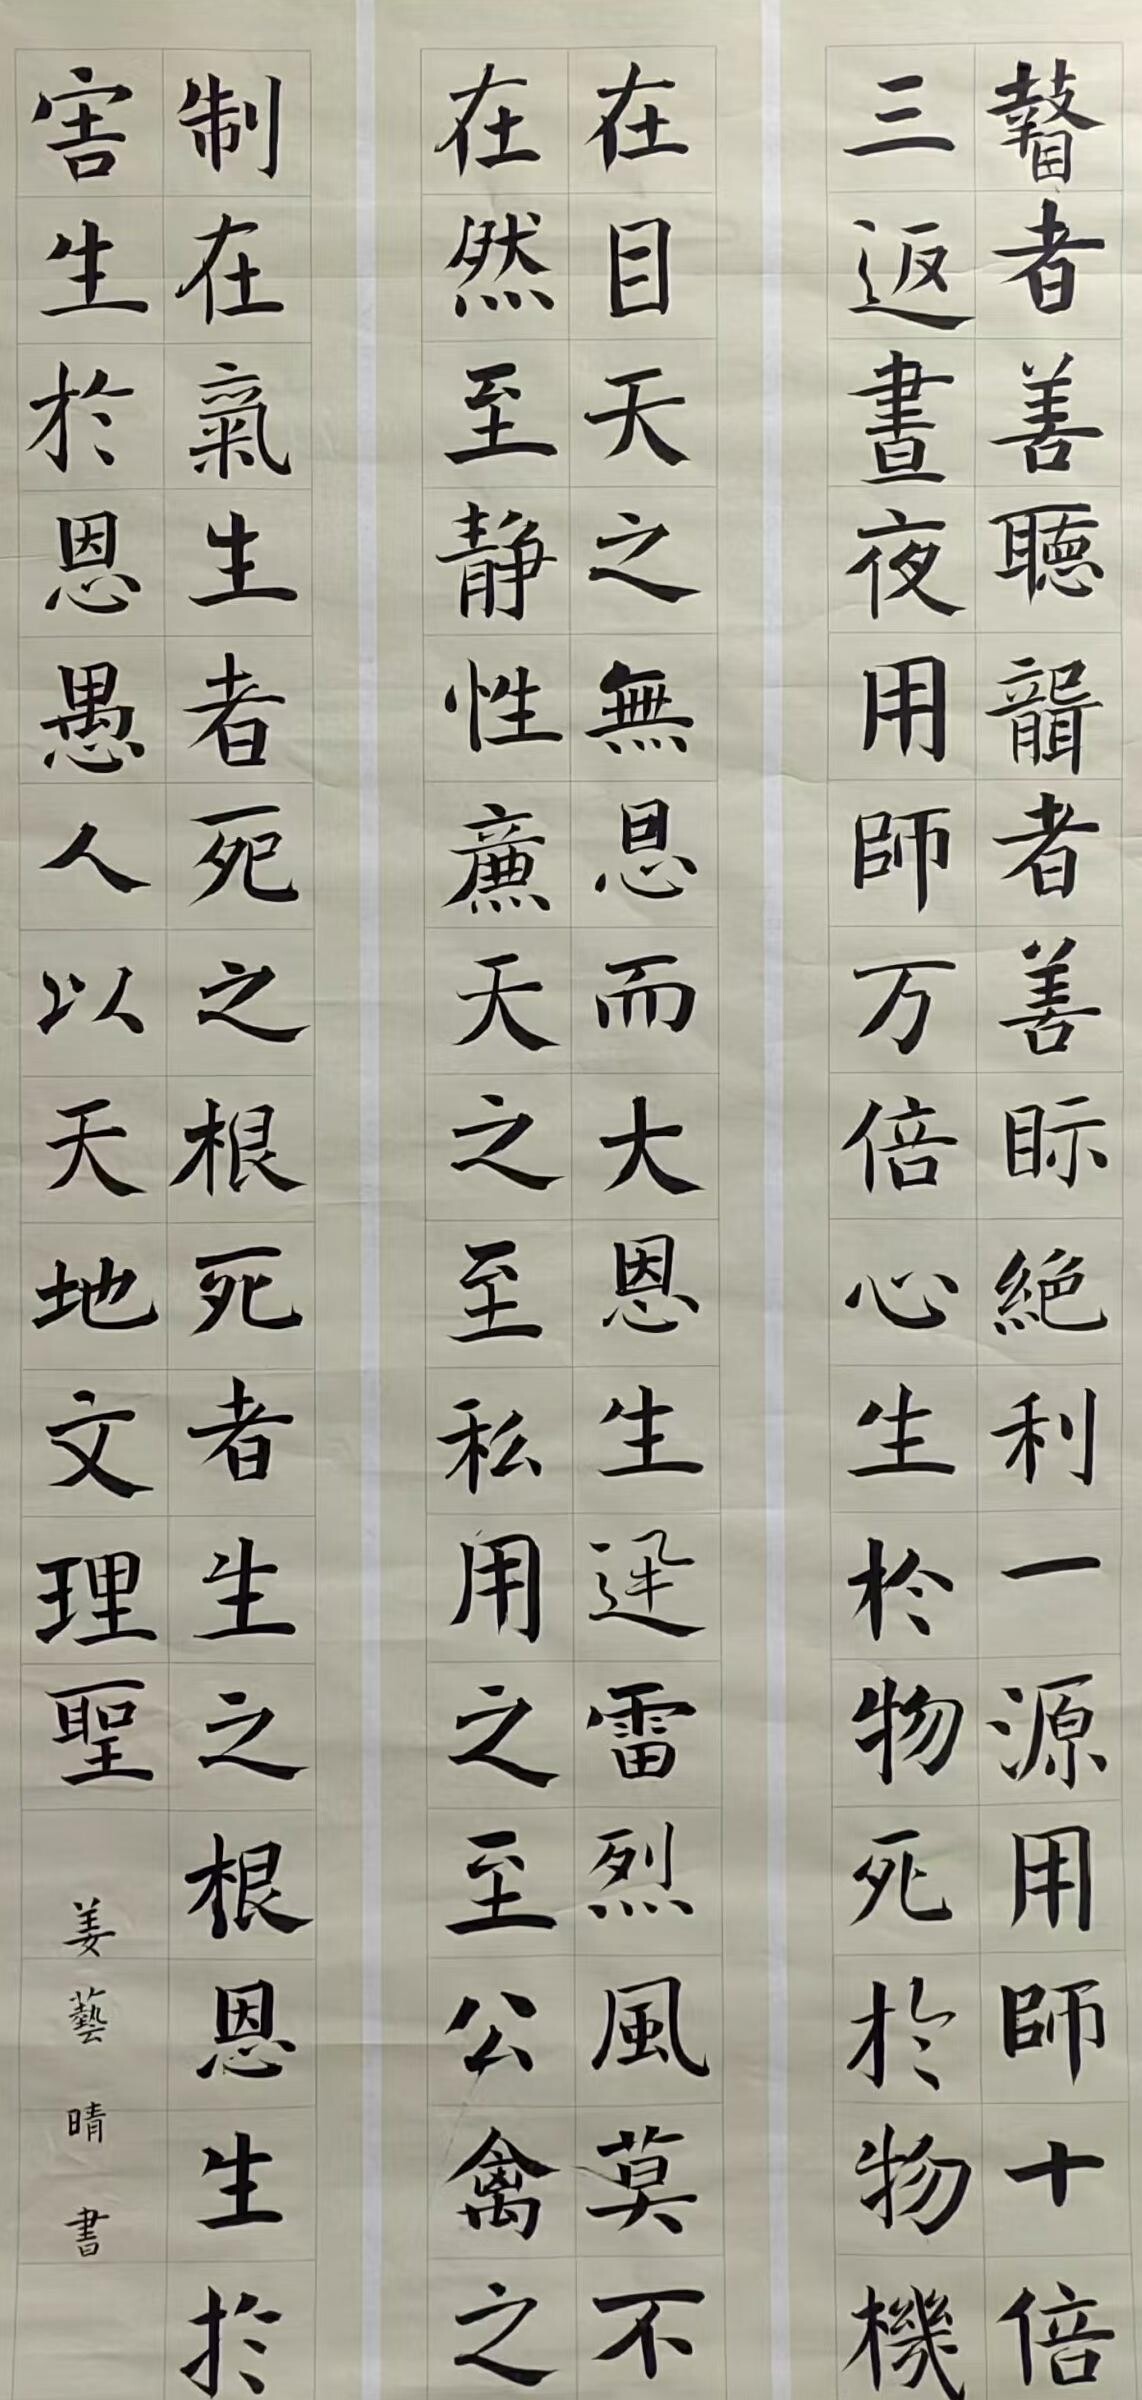 瞽者善聽聾者善眎絶利一源用師十倍
三返晝夜用師万倍心生於物死於物機
在目天之無恩而大恩生迅雷烈風莫不
在然至静性廉天之至私用之至公禽之
制在氣生者死之根死者生之根恩生於
害生於恩愚人以天地文理聖
姜藝晴書